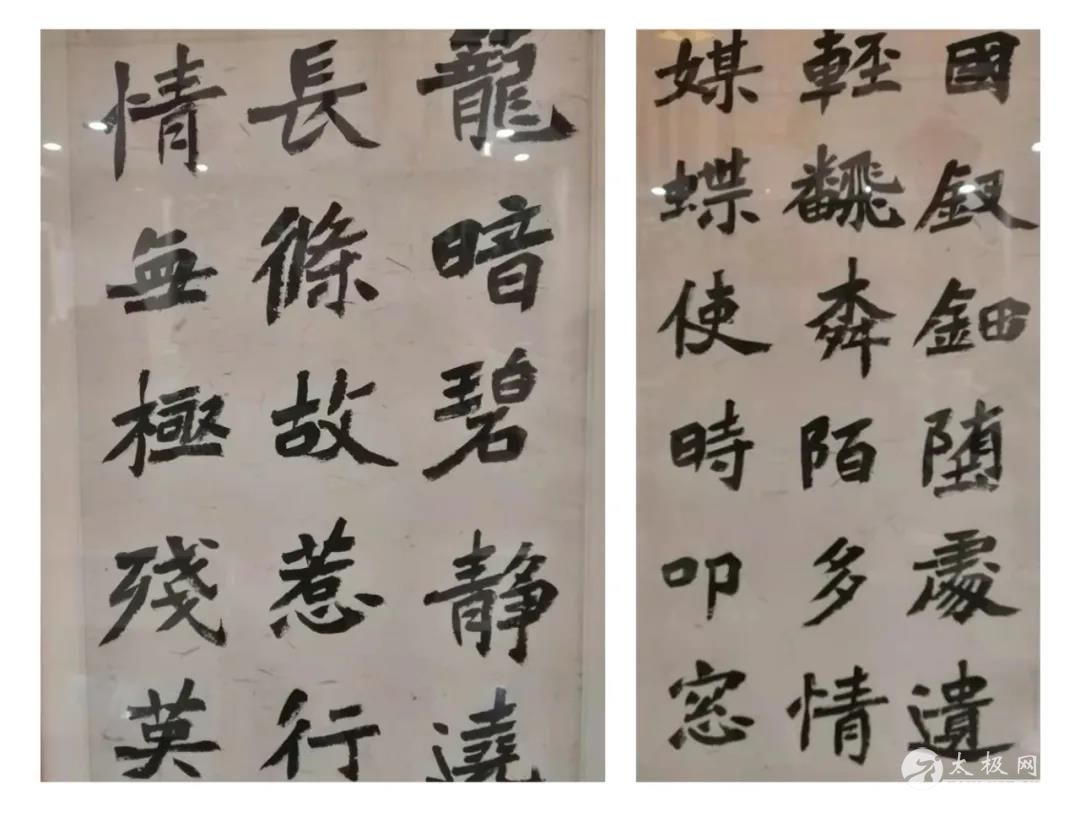 國釵鈿堕處遺
輕飜桒陌多情
媒蝶使時叩窓
籠暗碧靜遶
長條故惹行
情無極殘英
太极网